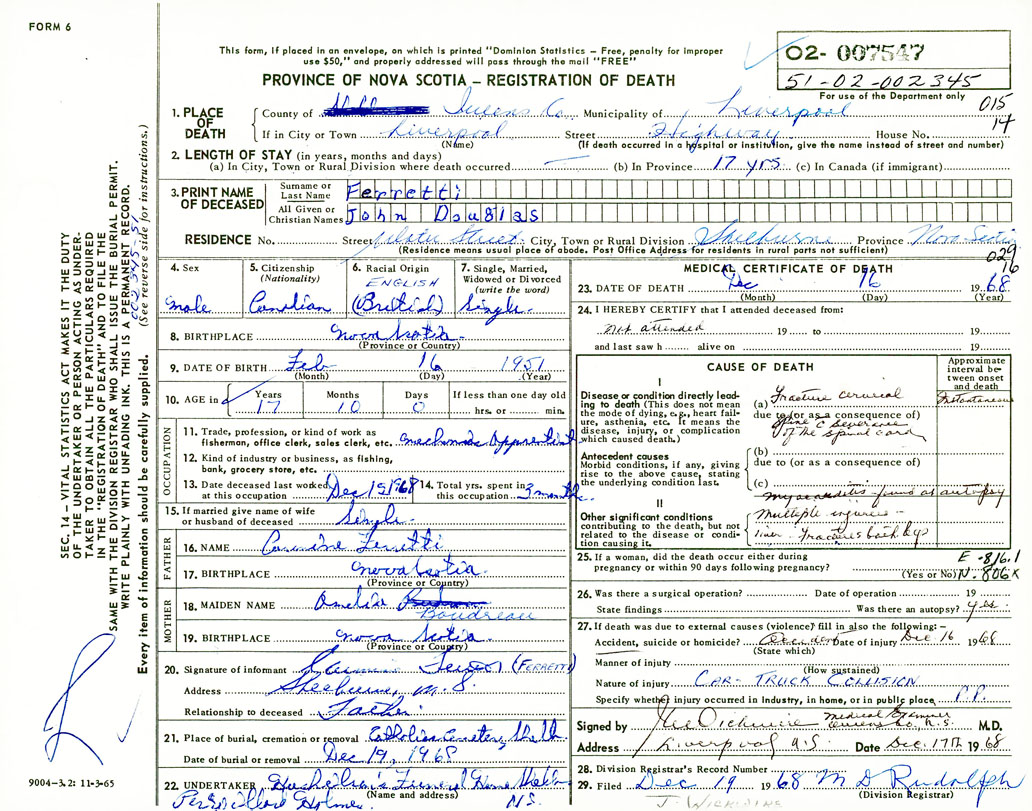 FORM 6
This form, if placed in an envelope, on which is printed "Dominion Statistics – Free, penalty for improper
use $50," and properly addressed will pass through the mail "FREE"
PROVINCE OF NOVA SCOTIA – REGISTRATION OF DEATH
02- 007547
51-02-002345
For use of the Department only
015
14
1. PLACE OF DEATH
County of Queens Co. Municipality of Liverpool
If in City or Town Liverpool Street Highway House No.
(Name) (If death occurred in a hospital or institution, give the name instead of street and number)
2. LENGTH OF STAY (in years, months and days)
(a) In City, Town or Rural Division where death occurred — (b) In Province 17 yrs. (c) In Canada (if immigrant)
3. PRINT NAME OF DECEASED
Surname or Last Name Ferretti
All Given or Christian Names John Douglas
RESIDENCE No. Street Street City, Town or Rural Division Shelburne Province Nova Scotia
(Residence means usual place of abode. Post Office Address for residents in rural parts not sufficient)
029
16
4. Sex
male
5. Citizenship (Nationality)
Canadian
6. Racial Origin
ENGLISH
(British)
7. Single, Married, Widowed or Divorced (write the word)
Single
8. BIRTHPLACE Nova Scotia
(Province or Country)
9. DATE OF BIRTH Feb 16 1951
(Month) (Day) (Year)
10. AGE in
Years 17
Months 10
Days 0
If less than one day old
hrs. or min.
OCCUPATION
11. Trade, profession, or kind of work as
fisherman, office clerk, sales clerk, etc. mechanic Apprentist
12. Kind of industry or business, as fishing,
bank, grocery store, etc.
13. Date deceased last worked
at this occupation Dec 15, 1968
14. Total yrs. spent in
this occupation 3 months
15. If married give name of wife
or husband of deceased Single
FATHER
16. NAME Carmine Ferretti
17. BIRTHPLACE Nova Scotia
(Province or Country)
MOTHER
18. MAIDEN NAME Amelia
Boudreau
19. BIRTHPLACE Nova Scotia
(Province or Country)
20. Signature of informant (FERRETTI)
Address Shelburne, N.S.
Relationship to deceased Father
21. Place of burial, cremation or removal Catholic Cemetery Shelb
Date of burial or removal Dec 19, 1968
22. UNDERTAKER Funeral Home Shelb
(Name and address)
N.S.
MEDICAL CERTIFICATE OF DEATH
23. DATE OF DEATH Dec 16 1968
(Month) (Day) (Year)
24. I HEREBY CERTIFY that I attended deceased from:
Not attended 19 to 19
and last saw h alive on 19
CAUSE OF DEATH
Approximate interval between onset and death
I
Disease or condition directly lead-
ing to death (This does not mean
the mode of dying, e.g., heart fail-
ure, asthenia, etc. It means the
disease, injury, or complication
which caused death.)
(a) Fracture cervical
Instantaneous
due to (or as a consequence of)
spine c severance
of the spinal cord
Antecedent causes
Morbid conditions, if any, giving
rise to the above cause, stating
the underlying condition last.
(b)
due to (or as a consequence of)
(c)
myocarditis found at autopsy
II
Other significant conditions
contributing to the death, but not
related to the disease or condi-
tion causing it.
Multiple injuries –
liver – Fractures both legs
25. If a woman, did the death occur either during
pregnancy or within 90 days following pregnancy?
(Yes or No)
E -816.1
N. 806X
26. Was there a surgical operation? Date of operation 19
State findings Was there an autopsy? yes.
27. If death was due to external causes (violence) fill in also the following:–
Accident, suicide or homicide? Accident Date of injury Dec 16 1968
(State which)
Manner of injury
(How sustained)
Nature of injury CAR - TRUCK COLLISION
Specify whether injury occurred in industry, in home, or in public place P.P.
Signed by Medical Examiner
Queens Co., N.S. M.D.
Address Liverpool N.S. Date Dec. 17th 1968
28. Division Registrar's Record Number
29. Filed Dec 19 1968 M D Rudolph
(Division Registrar)
SEC. 14 – VITAL STATISTICS ACT MAKES IT THE DUTY
OF THE UNDERTAKER OR PERSON ACTING AS UNDER-
TAKER TO OBTAIN ALL THE PARTICULARS REQUIRED
IN THE "REGISTRATION OF DEATH" AND TO FILE THE
SAME WITH THE DIVISION REGISTRAR WHO SHALL ISSUE THE BURIAL PERMIT.
WRITE PLAINLY WITH UNFADING INK. THIS IS A PERMANENT RECORD.
Every item of information should be carefully supplied. (See reverse side for instructions.)
9004-3.2: 11-3-65